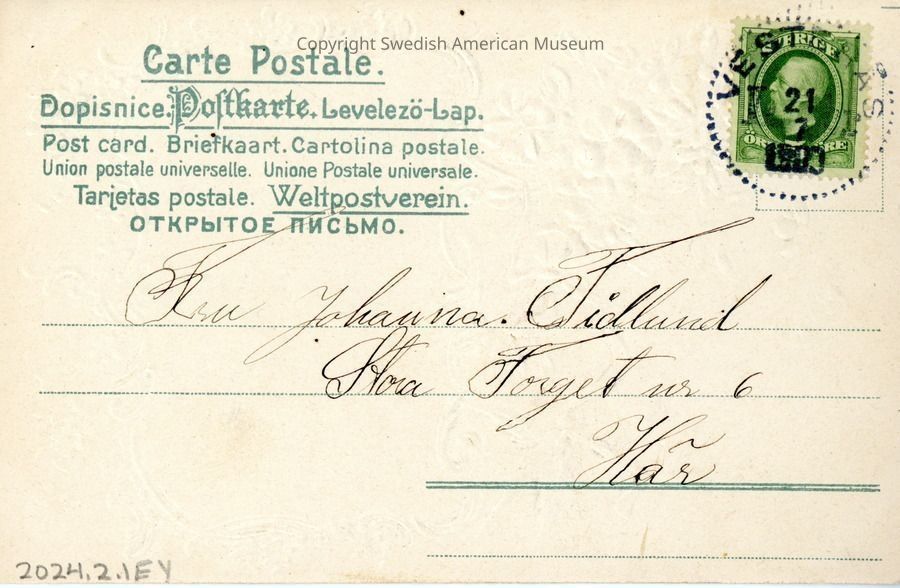 Copyright Swedish American Museum
Carte Postale.
Dopisnice. Postkarte. Levelező-Lap.
Post card. Briefkaart. Cartolina postale.
Union postale universelle. Unione Postale universale.
Tarjetas postale. Weltpostverein.
ОТКРЫТОЕ ПИСЬМО.
SVERIGE
21
7
Fru Johanna. Tidlund
Stora Torget nr 6
Här
2024.2.1EY